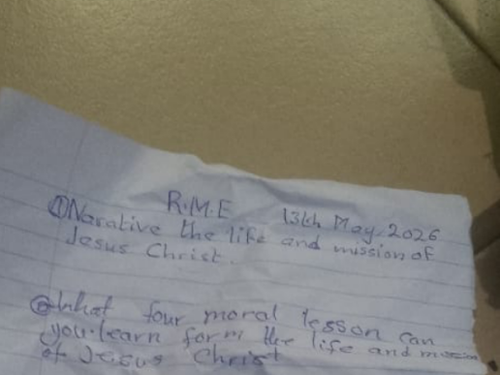 R.M.E 13th May, 2026
① Narative the life and mission of
Jesus Christ.
② What four moral lesson can
you learn form the life and mission
of Jesus Christ